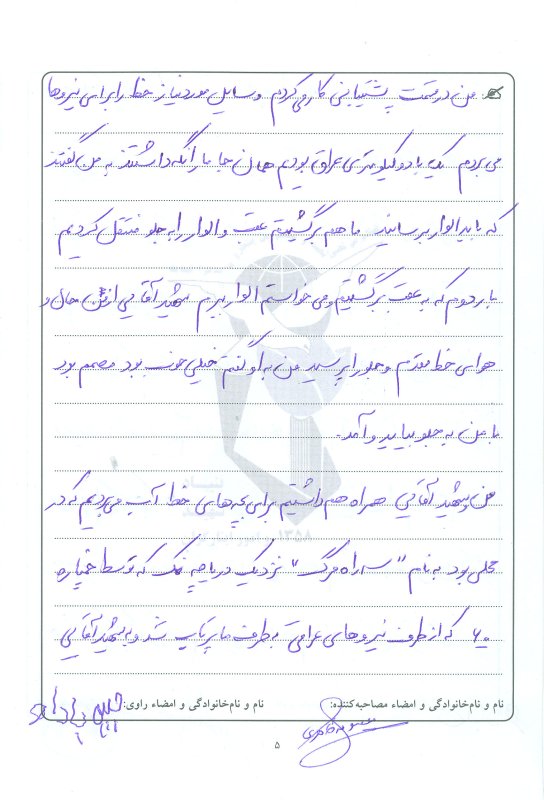 من در قسمت پشتیبانی کار می‌کردم وسایل مورد نیاز خط را برای نیروها
می‌بردم یک یا دو کیلومتری عراق بودیم همان جا ما را نگه داشتند به من گفتند
که باید الوار برسانید ما هم برگشتیم عقب و الوار را به جلو منتقل کردیم
بار دوم که به عقب برگشتیم و می خواستم الوار ببرم شهید آقایی از من حال و
هوای خط مقدم و جلو را پرسید من به او گفتم خیلی خوب بود مصمم بود
با من به جلو بیاید و آمد.
من و شهید آقایی همراه هم داشتیم برای بچه‌های خط آب می‌بردیم که در
محلی بود به نام "سه راه مرگ" نزدیک دریاچه نمک که توسط خمپاره
۶۰ که از طرف نیروهای عراقی به طرف ما پرتاب شد و به شهید آقایی
نام و نام‌خانوادگی و امضاء مصاحبه‌کننده:
نام و نام‌خانوادگی و امضاء راوی:
۵
۱۳۵۸